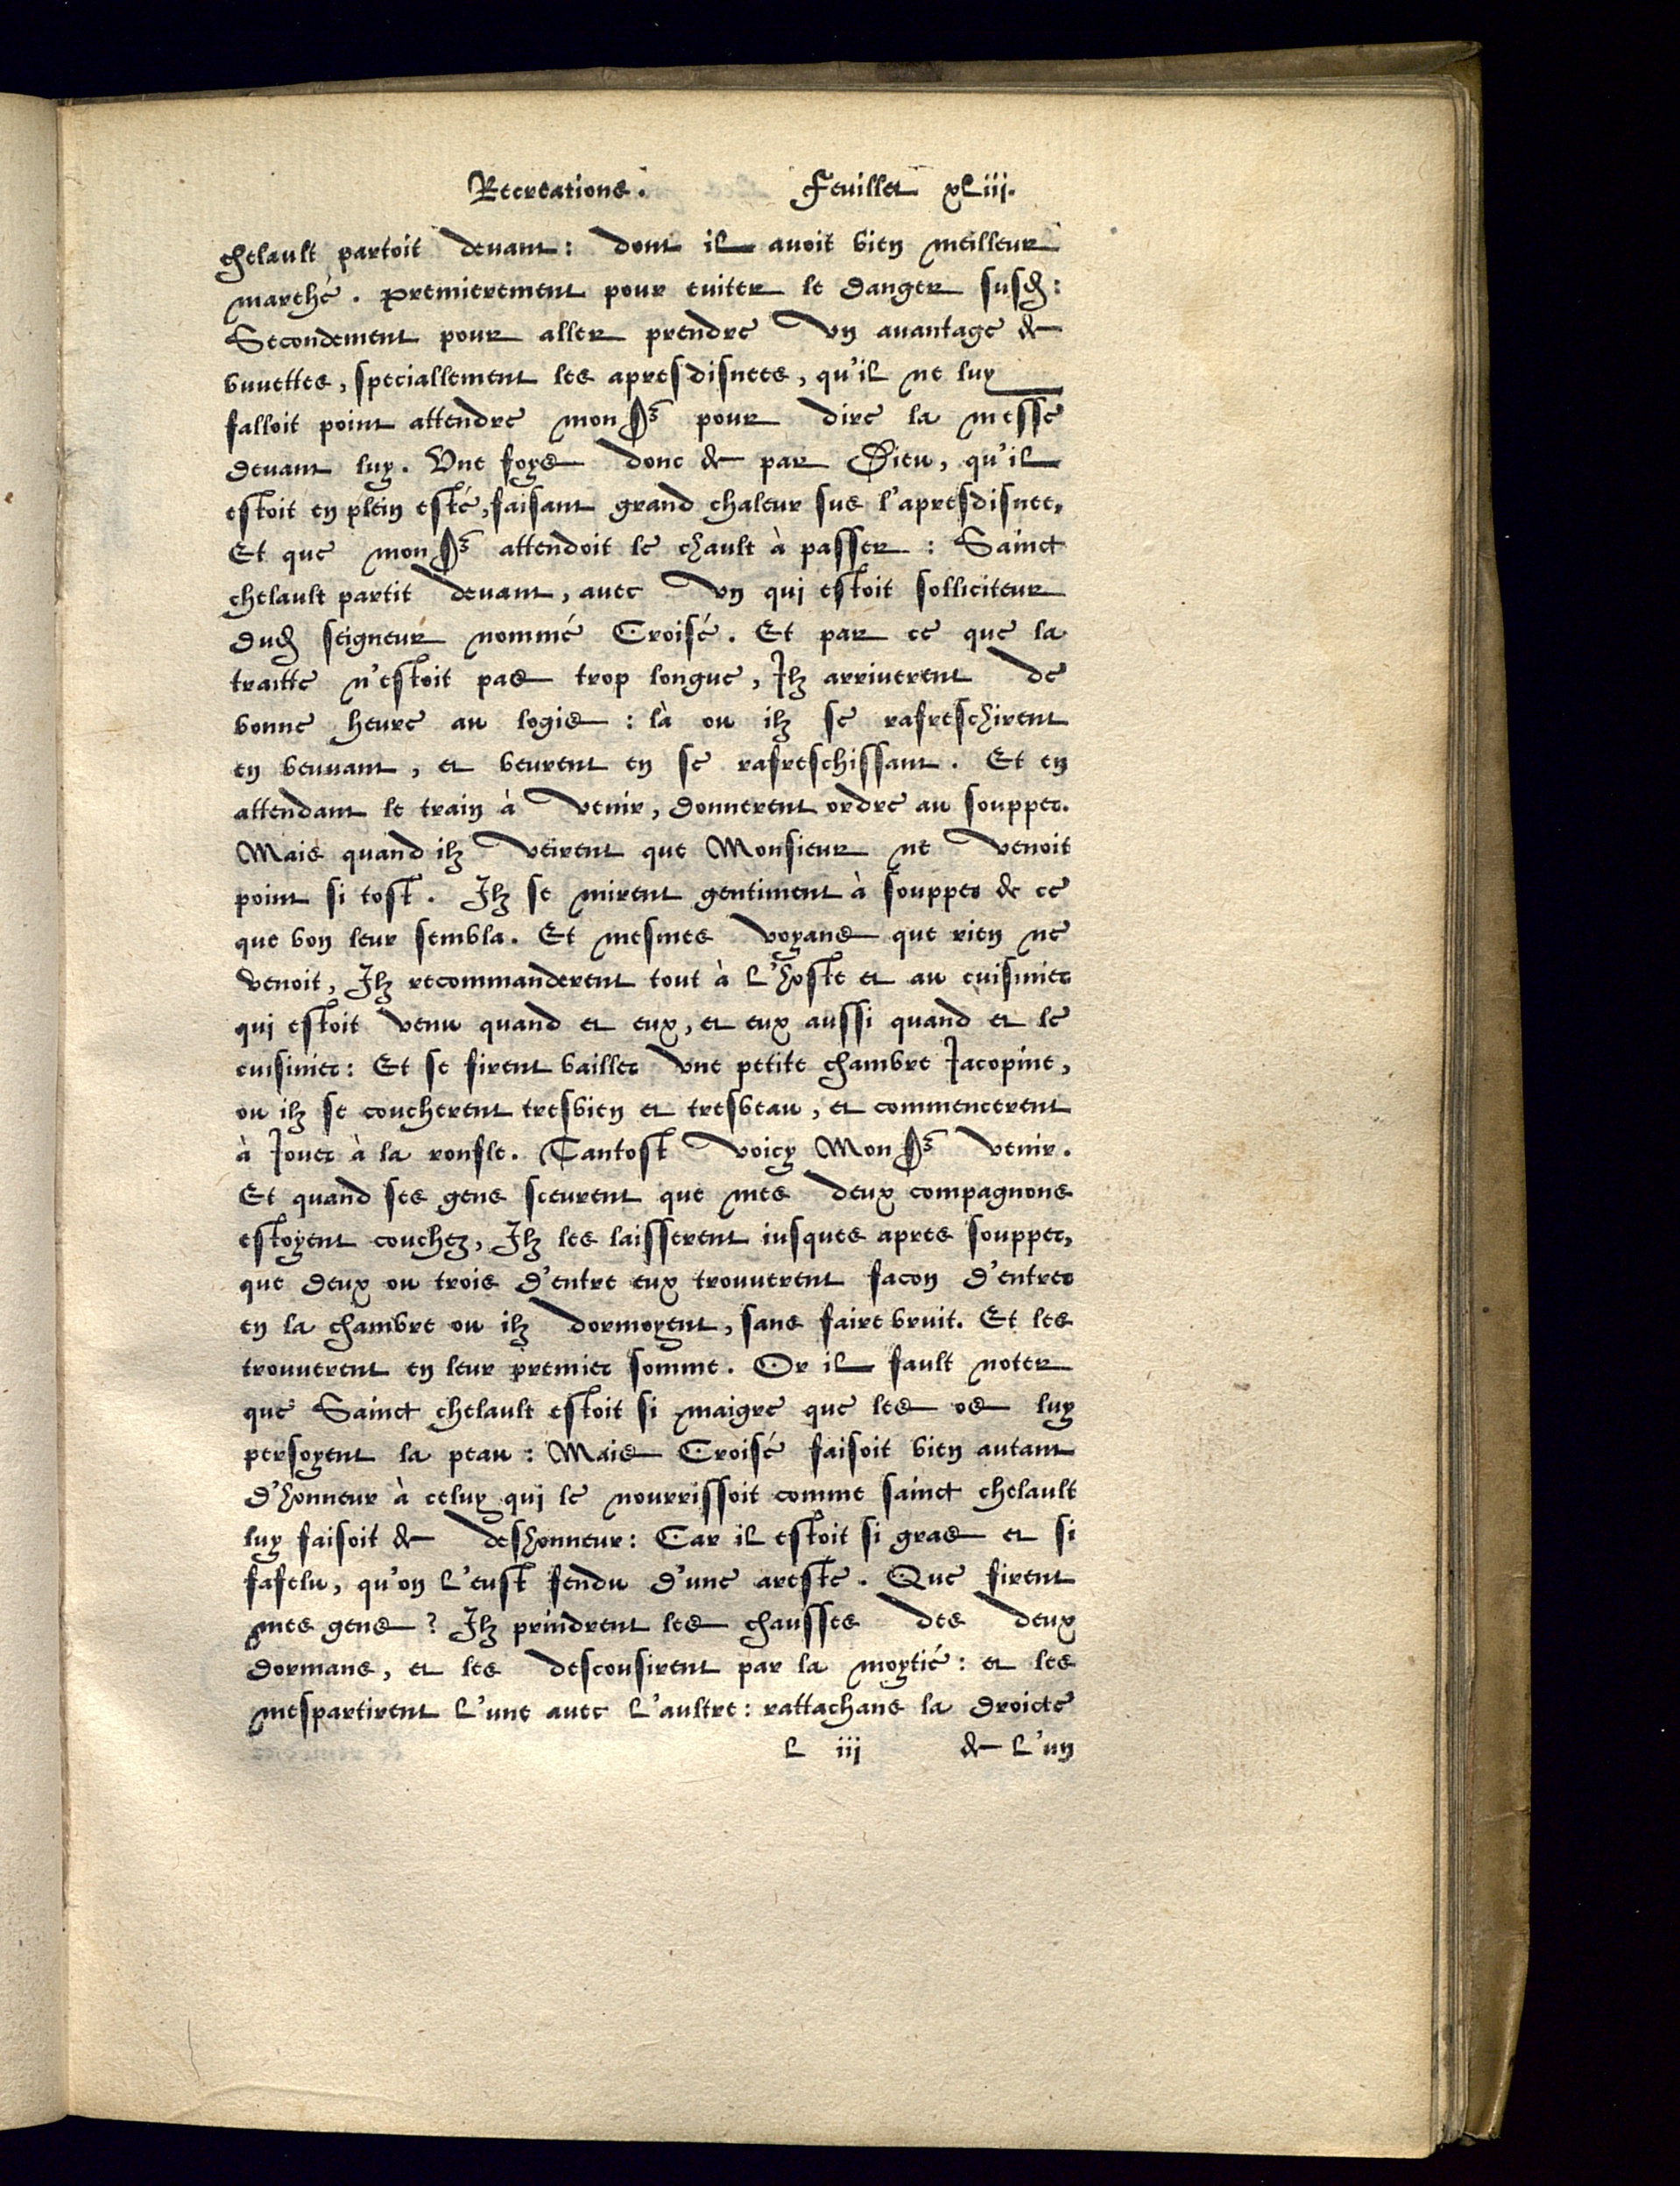 Recreations. Feuillet xLiij.
chelault partoit deuant: dont il auoit bien meilleur
marché. Premierement pour euiter le danger susd:
Secondement pour aller prendre vn auantage de
buuettes, speciallement les apresdisnees, qu'il ne luy
falloit point attendre monsr pour dire la messe
deuant luy. Vne foys donc de par Dieu, qu'il
estoit en plein esté, faisant grand chaleur sus l'apresdisnee,
Et que monsr attendoit le chault à passer: Sainct
chelault partit deuant, auec vn qui estoit solliciteur
dud seigneur nommé Croisé. Et par ce que la
traitte n'estoit pas trop longue, Ilz arriuerent de
bonne heure au logis: là ou ilz se rafreschirent
en beuuant, et beurent en se rafreschissant. Et en
attendant le train à venir, donnerent ordre au soupper.
Mais quand ilz veirent que Monsieur ne venoit
point si tost. Ilz se mirent gentiment à soupper de ce
que bon leur sembla. Et mesmes voyans que rien ne
venoit, Ilz recommanderent tout à l'hoste et au cuisinier
qui estoit venu quand et eux, et eux aussi quand et le
cuisinier: Et se firent bailler vne petite chambre Jacopine,
ou ilz se coucherent tresbien et tresbeau, et commencerent
à Jouer à la ronfle. Tantost voicy Monsr venir.
Et quand ses gens sceurent que mes deux compagnons
estoyent couchez, Ilz les laisserent iusques apres soupper,
que deux ou trois d'entre eux trouuerent facon d'entrer
en la chambre ou ilz dormoyent, sans faire bruit. Et les
trouuerent en leur premier somme. Or il fault noter
que Sainct chelault estoit si maigre que les os luy
persoyent la peau: Mais Croisé faisoit bien autant
d'honneur à celuy qui le nourrissoit comme sainct chelault
luy faisoit de deshonneur: Car il estoit si gras et si
fafelu, qu'on l'eust fendu d'une areste. Que firent
mes gens? Ilz prindrent les chausses des deux
dormans, et les descousirent par la moytié: et les
mespartirent l'une auec l'aultre: rattachans la droicte
L iij de l'un